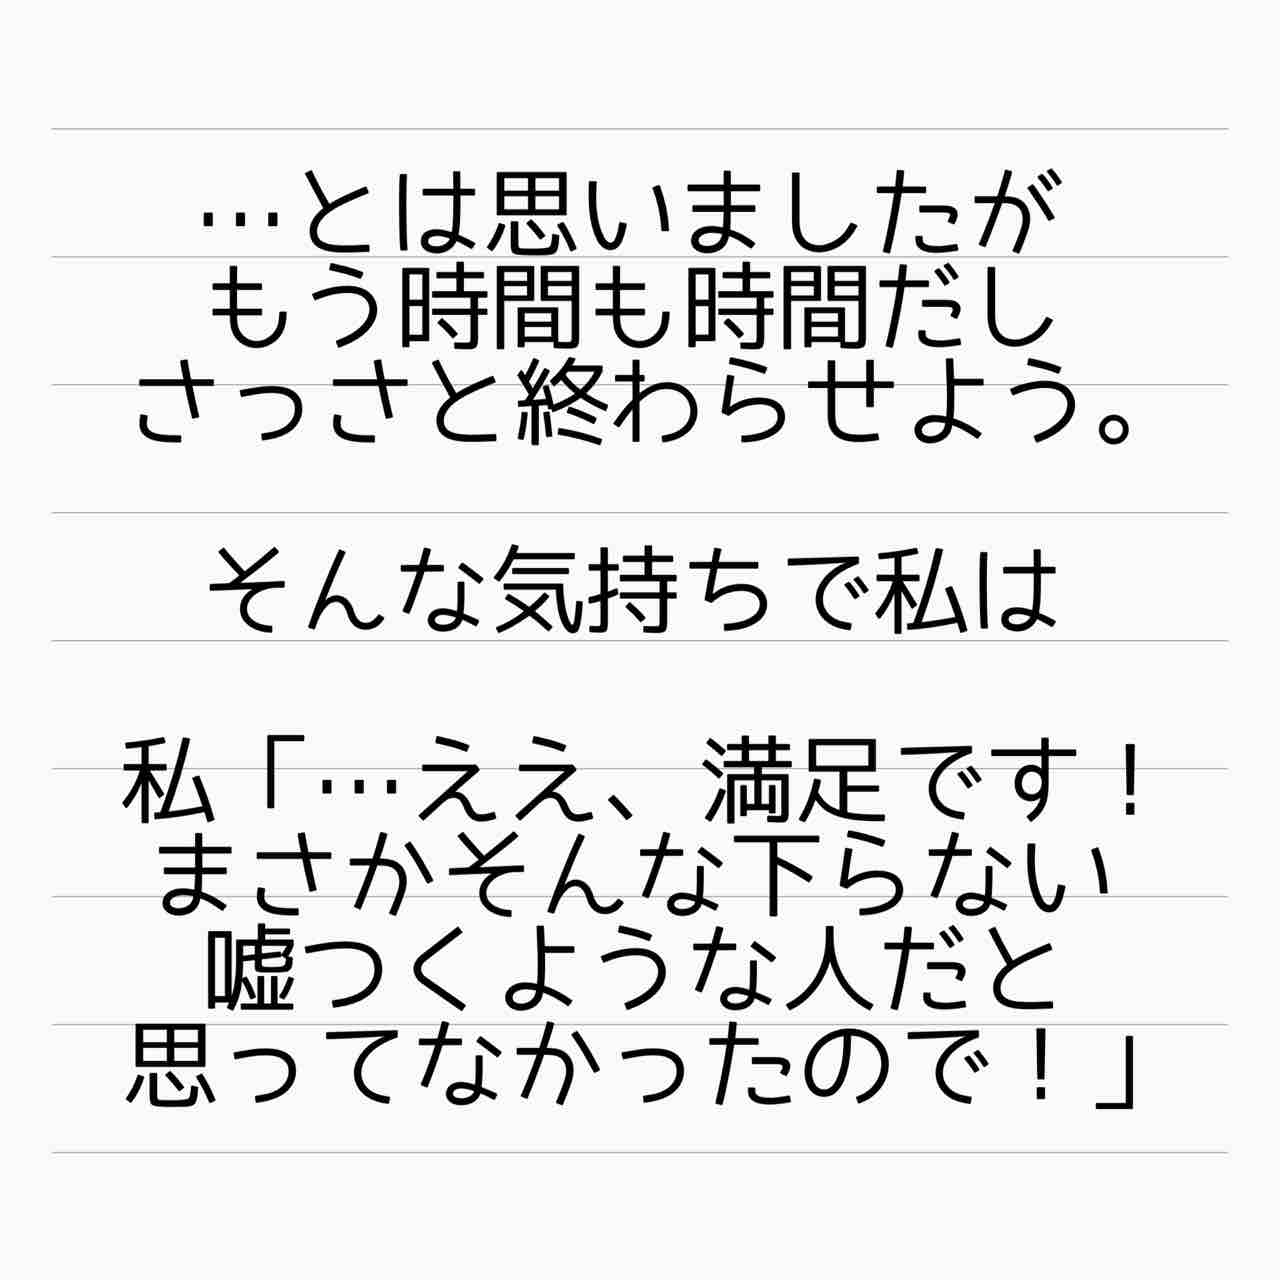 …とは思いましたが
もう時間も時間だし
さっさと終わらせよう。
そんな気持ちで私は
私「…ええ、満足です！
まさかそんな下らない
嘘つくような人だと
思ってなかったので！」